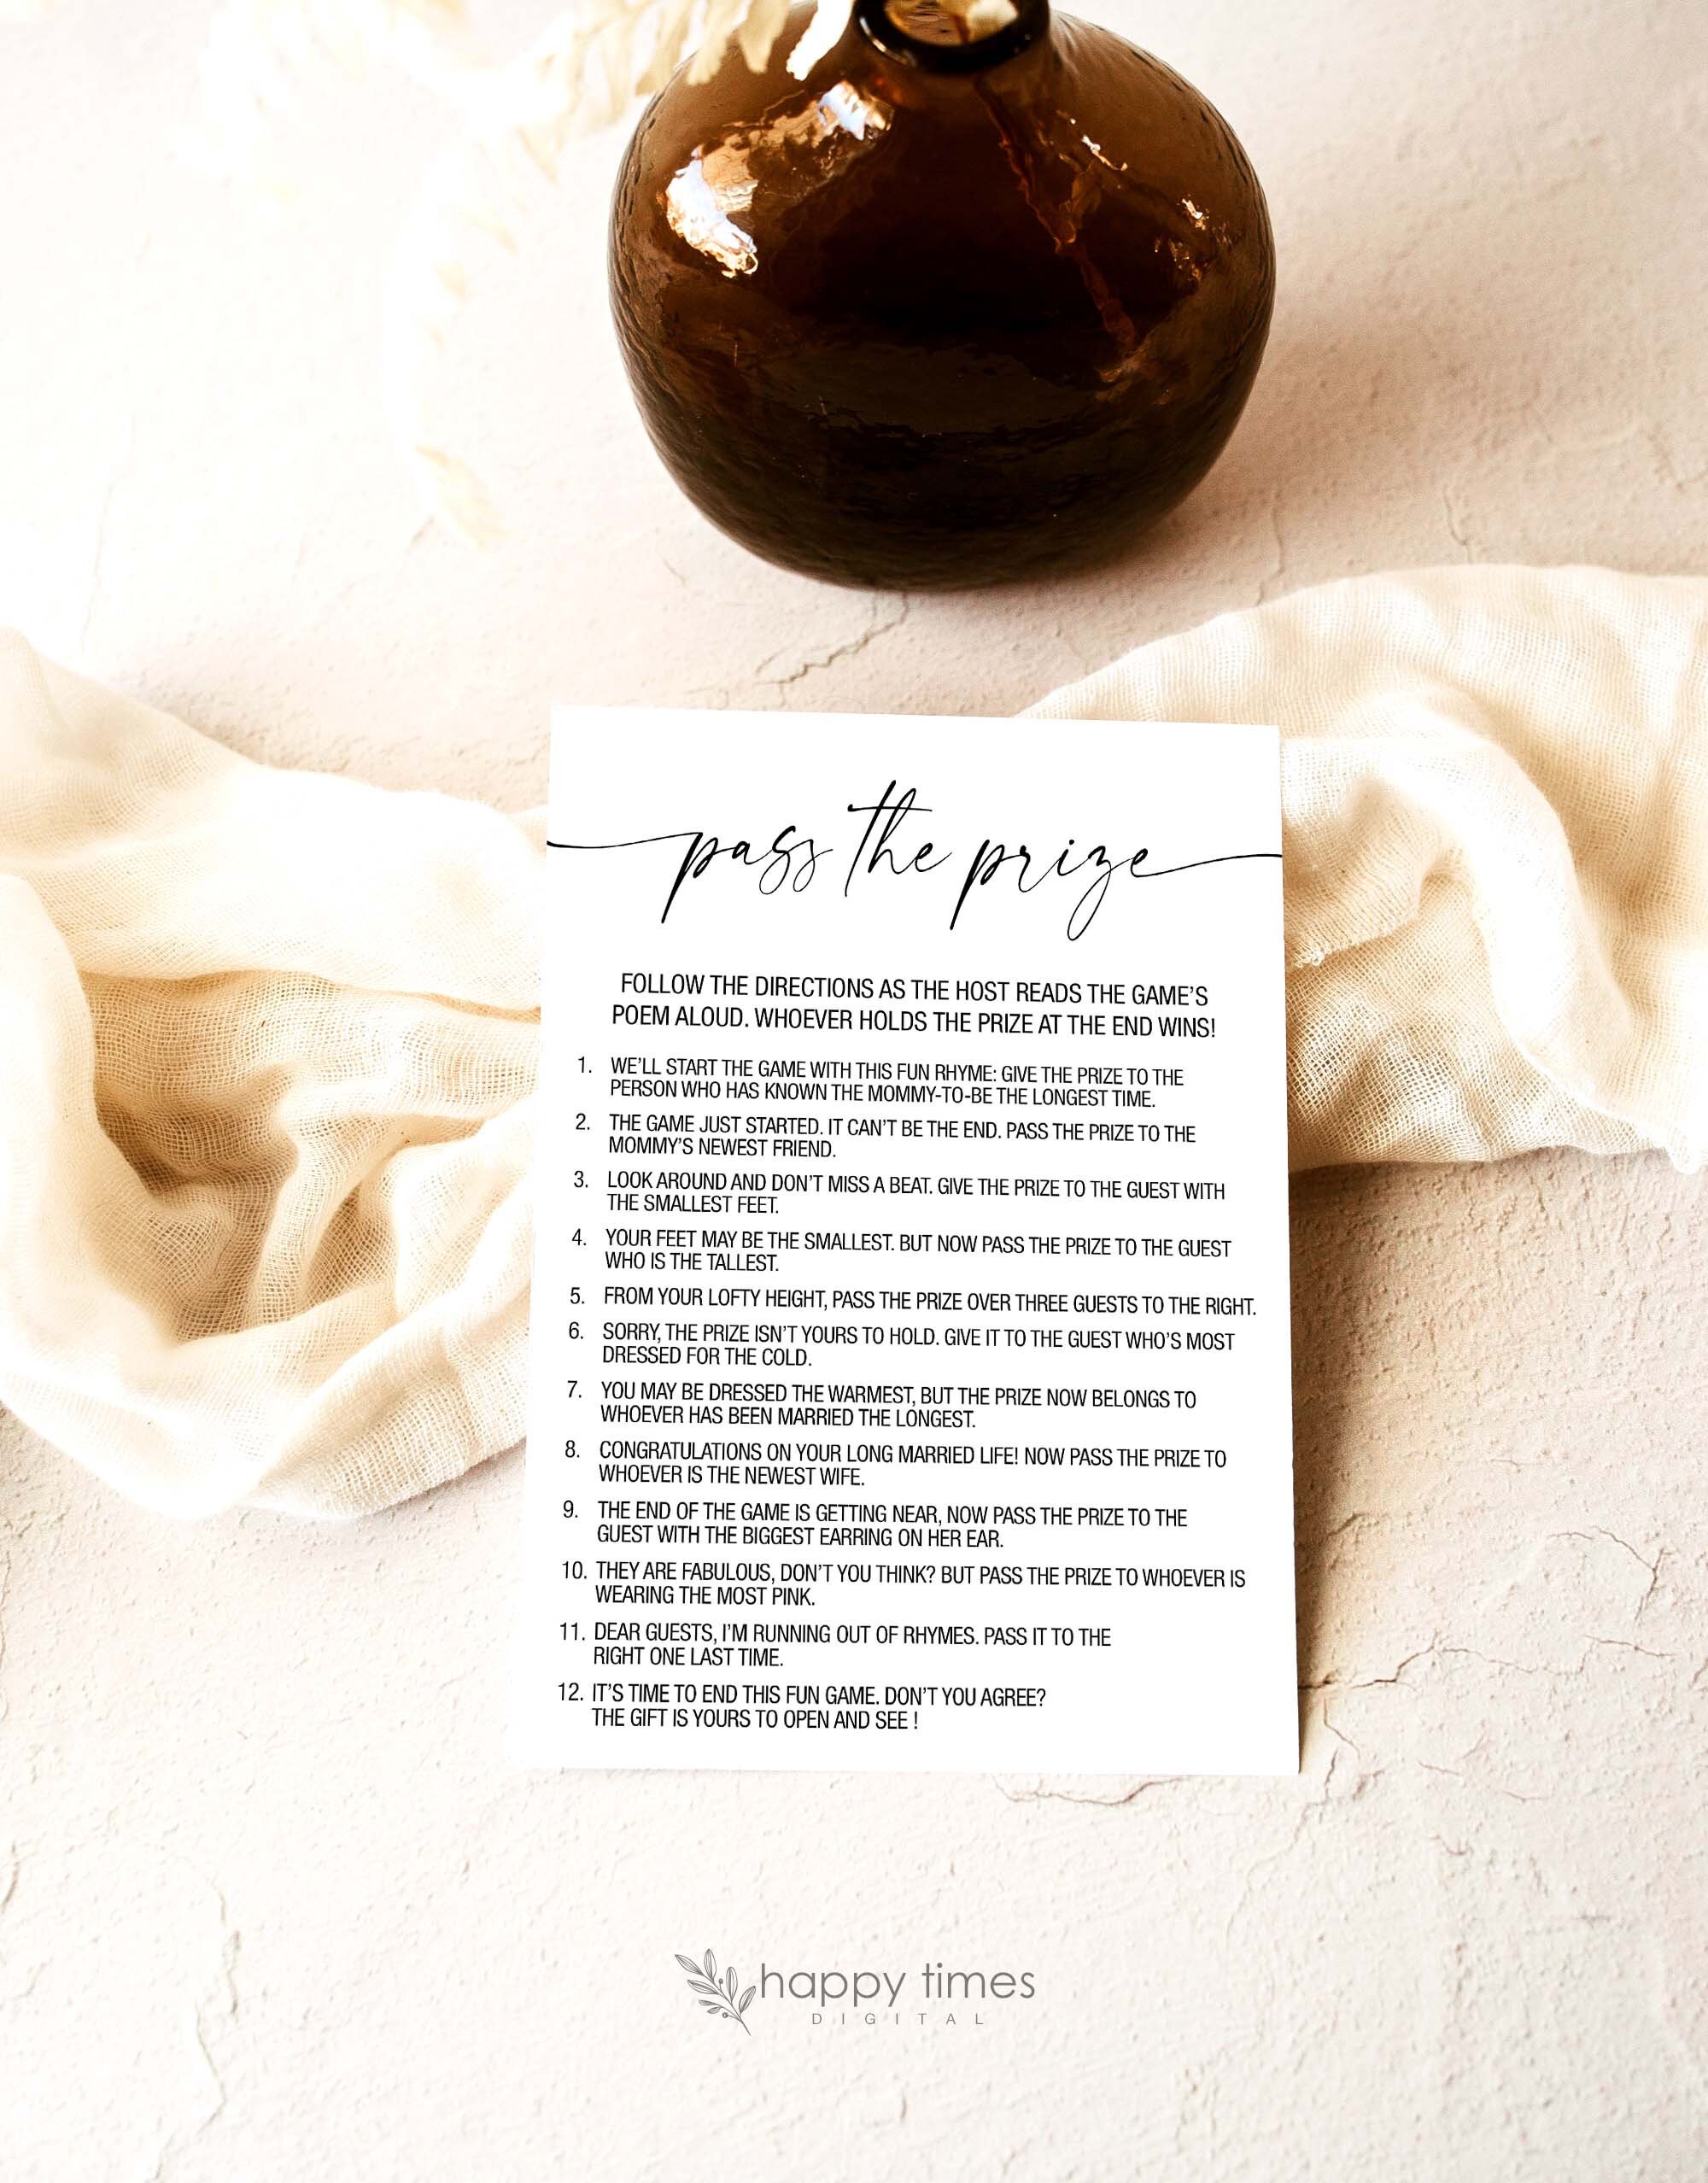 pass the prize
FOLLOW THE DIRECTIONS AS THE HOST READS THE GAME'S
POEM ALOUD. WHOEVER HOLDS THE PRIZE AT THE END WINS!
1. WE'LL START THE GAME WITH THIS FUN RHYME: GIVE THE PRIZE TO THE
PERSON WHO HAS KNOWN THE MOMMY-TO-BE THE LONGEST TIME.
2. THE GAME JUST STARTED. IT CAN'T BE THE END. PASS THE PRIZE TO THE
MOMMY'S NEWEST FRIEND.
3. LOOK AROUND AND DON'T MISS A BEAT. GIVE THE PRIZE TO THE GUEST WITH
THE SMALLEST FEET.
4. YOUR FEET MAY BE THE SMALLEST. BUT NOW PASS THE PRIZE TO THE GUEST
WHO IS THE TALLEST.
5. FROM YOUR LOFTY HEIGHT, PASS THE PRIZE OVER THREE GUESTS TO THE RIGHT.
6. SORRY, THE PRIZE ISN'T YOURS TO HOLD. GIVE IT TO THE GUEST WHO'S MOST
DRESSED FOR THE COLD.
7. YOU MAY BE DRESSED THE WARMEST, BUT THE PRIZE NOW BELONGS TO
WHOEVER HAS BEEN MARRIED THE LONGEST.
8. CONGRATULATIONS ON YOUR LONG MARRIED LIFE! NOW PASS THE PRIZE TO
WHOEVER IS THE NEWEST WIFE.
9. THE END OF THE GAME IS GETTING NEAR, NOW PASS THE PRIZE TO THE
GUEST WITH THE BIGGEST EARRING ON HER EAR.
10. THEY ARE FABULOUS, DON'T YOU THINK? BUT PASS THE PRIZE TO WHOEVER IS
WEARING THE MOST PINK.
11. DEAR GUESTS, I'M RUNNING OUT OF RHYMES. PASS IT TO THE
RIGHT ONE LAST TIME.
12. IT'S TIME TO END THIS FUN GAME. DON'T YOU AGREE?
THE GIFT IS YOURS TO OPEN AND SEE !
happy times
DIGITAL